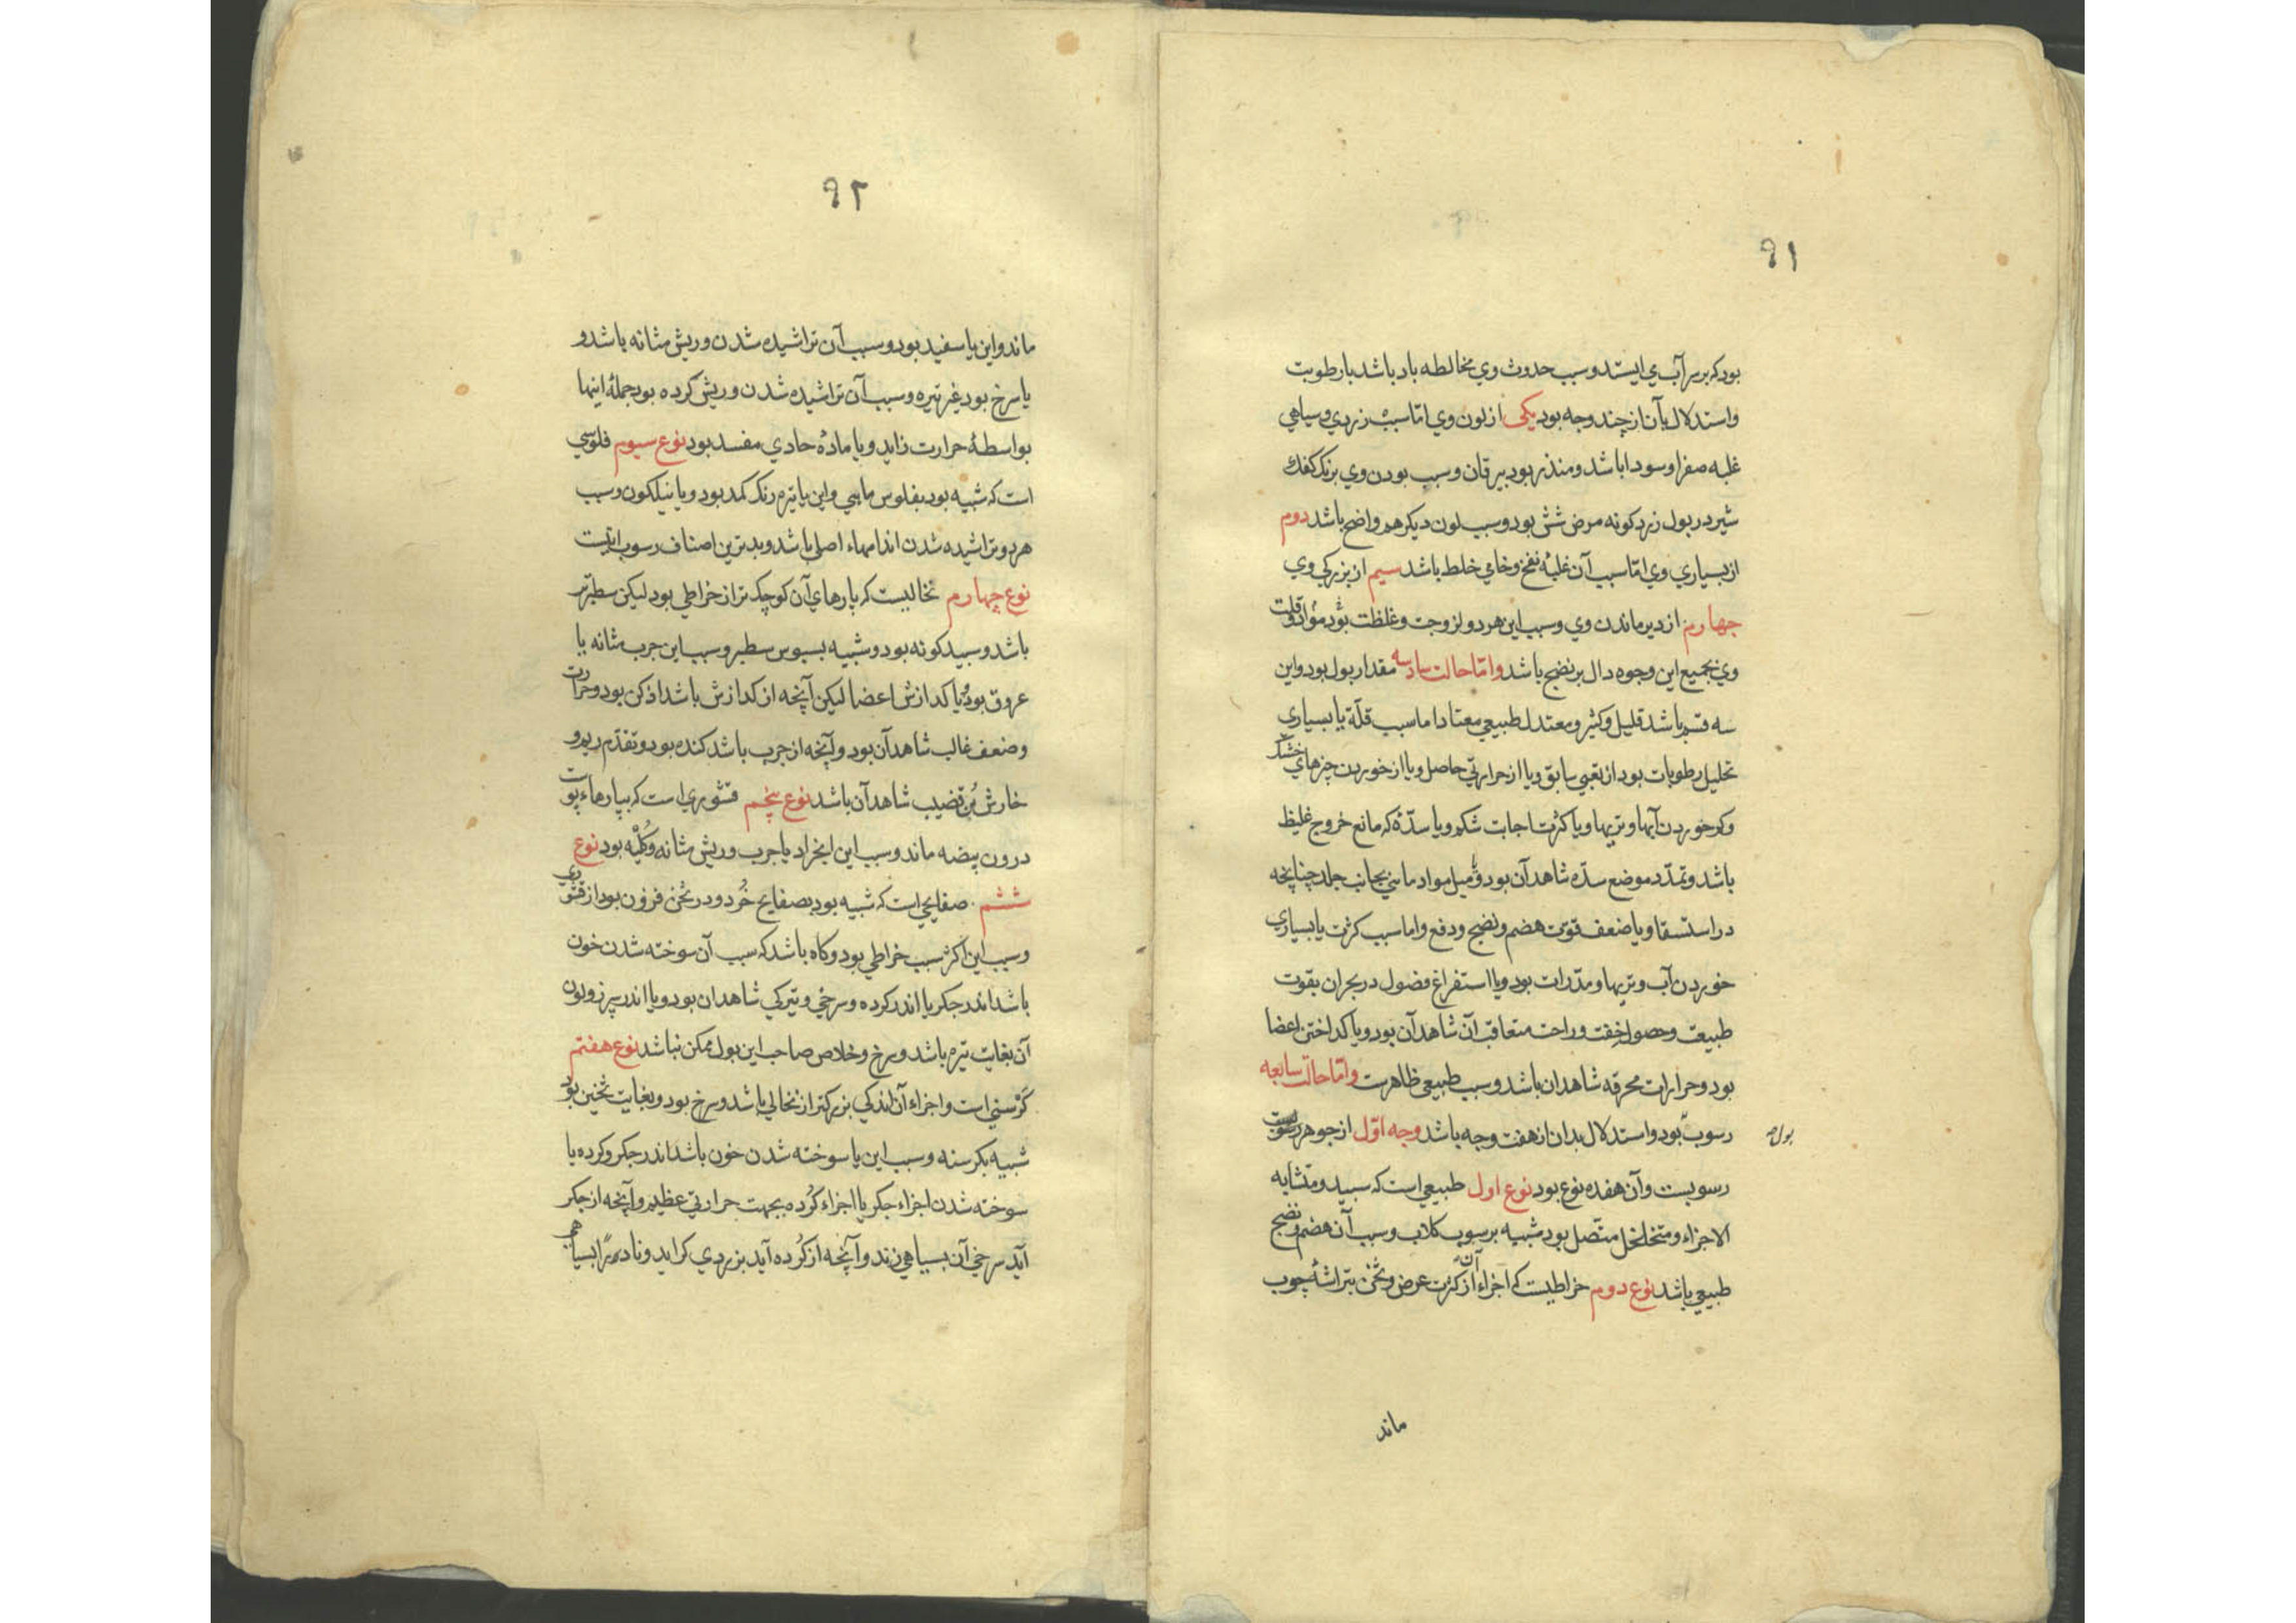 ۹۱
بود که بر سر آب می ایستد و سبب حدوث وی مخالطه باد باشد با رطوبت
و استدلال بآن از چند وجه بود یکی از لون وی اما سبب زردی و سیاهی
غلبه صفرا و سودا باشد و منذر بود بیرقان و سبب بودن وی برنک کفك
شیر در بول زرد کونه مرض شش بود و سبب لون دیکر هم واضح باشد دوم
از بسیاری وی اما سبب آن غلبۀ نفخ و خامی خلط باشد سیم از بزرکی وی
جهارم از دیر ماندن وی و سبب این هر دو لزوجت و غلظت بود مواد و قلت
وی بجمیع این وجوه دال بر نضج باشد و اما حالت سادسه مقدار بول بود و این
سه قسم باشد قلیل و کثیر و معتدل طبیعی معتاد اما سبب قلّة یا بسیاری
تحلیل رطوبات بود از تعبی سابق و یا از حرارتی حاصل و یا از خوردن چیزهای خشک
و کم خوردن آبها و تریها و یا کثرت اجابت شکم و یا سدّۀ که مانع خروج غلیظ
باشد و تمدّد موضع سدّه شاهد آن بود و میل مواد مائی بجانب جلد چنانچه
در استسقا و یا ضعف قوّت هضم و نضج و دفع و اما سبب کثرت یا بسیاری
خوردن آب و تریها و مدّرات بود و یا استفراغ فضول در بحران بقوت
طبیعت و حصول خفت و راحت متعاقب آن شاهد آن بود و یا کداختن اعضا
بود و حرارات محرقه شاهدان باشد و سبب طبیعی ظاهرست و اما حالت سابعه
رسوب بود و استدلال بدان از هفت وجه باشد وجه اوّل از جوهر رسوبست
بول
رسوبست و آن هفده نوع بود نوع اول طبیعی است که سبید و متشابه
الاجزاء و متخلخل متصل بود شبیه برسوب کلاب و سبب آن هضم و نضج
طبیعی باشد نوع دوم خراطیست که اجزاء آن از کثرت عرض و ثخن بتراشۀ چوب
ماند
۹۲
ماند و این یا سفید بود و سبب آن تراشیده شدن و ریش مثانه باشد و
یا سرخ بود غیر تیره و سبب آن تراشیده شدن و ریش کرده بود جملۀ اینها
بواسطۀ حرارت زاید و یا مادۀ حادی مفسد بود نوع سیوم فلوسی
است که شبیه بود بفلوس ماهی و این یا تیره رنک کمد بود و یا نیلکون و سبب
هر دو تراشیده شدن اندامهاء اصلی باشد و بدترین اصناف رسوب اینست
نوع چهارم نخالیست که پارهای آن کوچک تر از خراطی بود لیکن سطبرتر
باشد و سبید کونه بود و شبیه بسبوس سطبر و سبب این جرب مثانه یا
عروق بود و یا کدازش اعضا لیکن آنچه از کدازش باشد اذکن بود و حرارت
و ضعف غالب شاهد آن بود و آنچه از جرب باشد کنده بود و تقدّم ریم و
خارش بُن قضیب شاهد آن باشد نوع پنجم قشوری است که بپارهاء پوست
درون بیضه ماند و سبب این انجراد یا جرب و ریش مثانه و کُلیْه بود نوع
ششم صفایحی است که شبیه بود بصفایح خُرد و در ثخن فزون بود از قشوری
و سبب این اکثر سبب خراطی بود و کاه باشد که سبب آن سوخته شدن خون
باشد اندر جکر یا اندر کرده و سرخی و تیرکی شاهدان بود و یا اندر سپرز و لون
آن بغایت تیره باشد و سرخ و خلاص صاحب این بول ممکن نباشد نوع هفتم
کرْسنی است و اجزاء آن اندکی بزرکتر از نخالی باشد و سرخ بود و بغایت ثخین بود
شبیه بکرسنه و سبب این یا سوخته شدن خون باشد اندر جکر و کرده یا
سوخته شدن اجزاء جکر یا اجزاء کُرده بجهت حرارتی عظیم و آنچه از جکر
آید سرخی آن بسیاهی زند و آنچه از کُرده آید بزردی کراید و نادراً بسیاهی